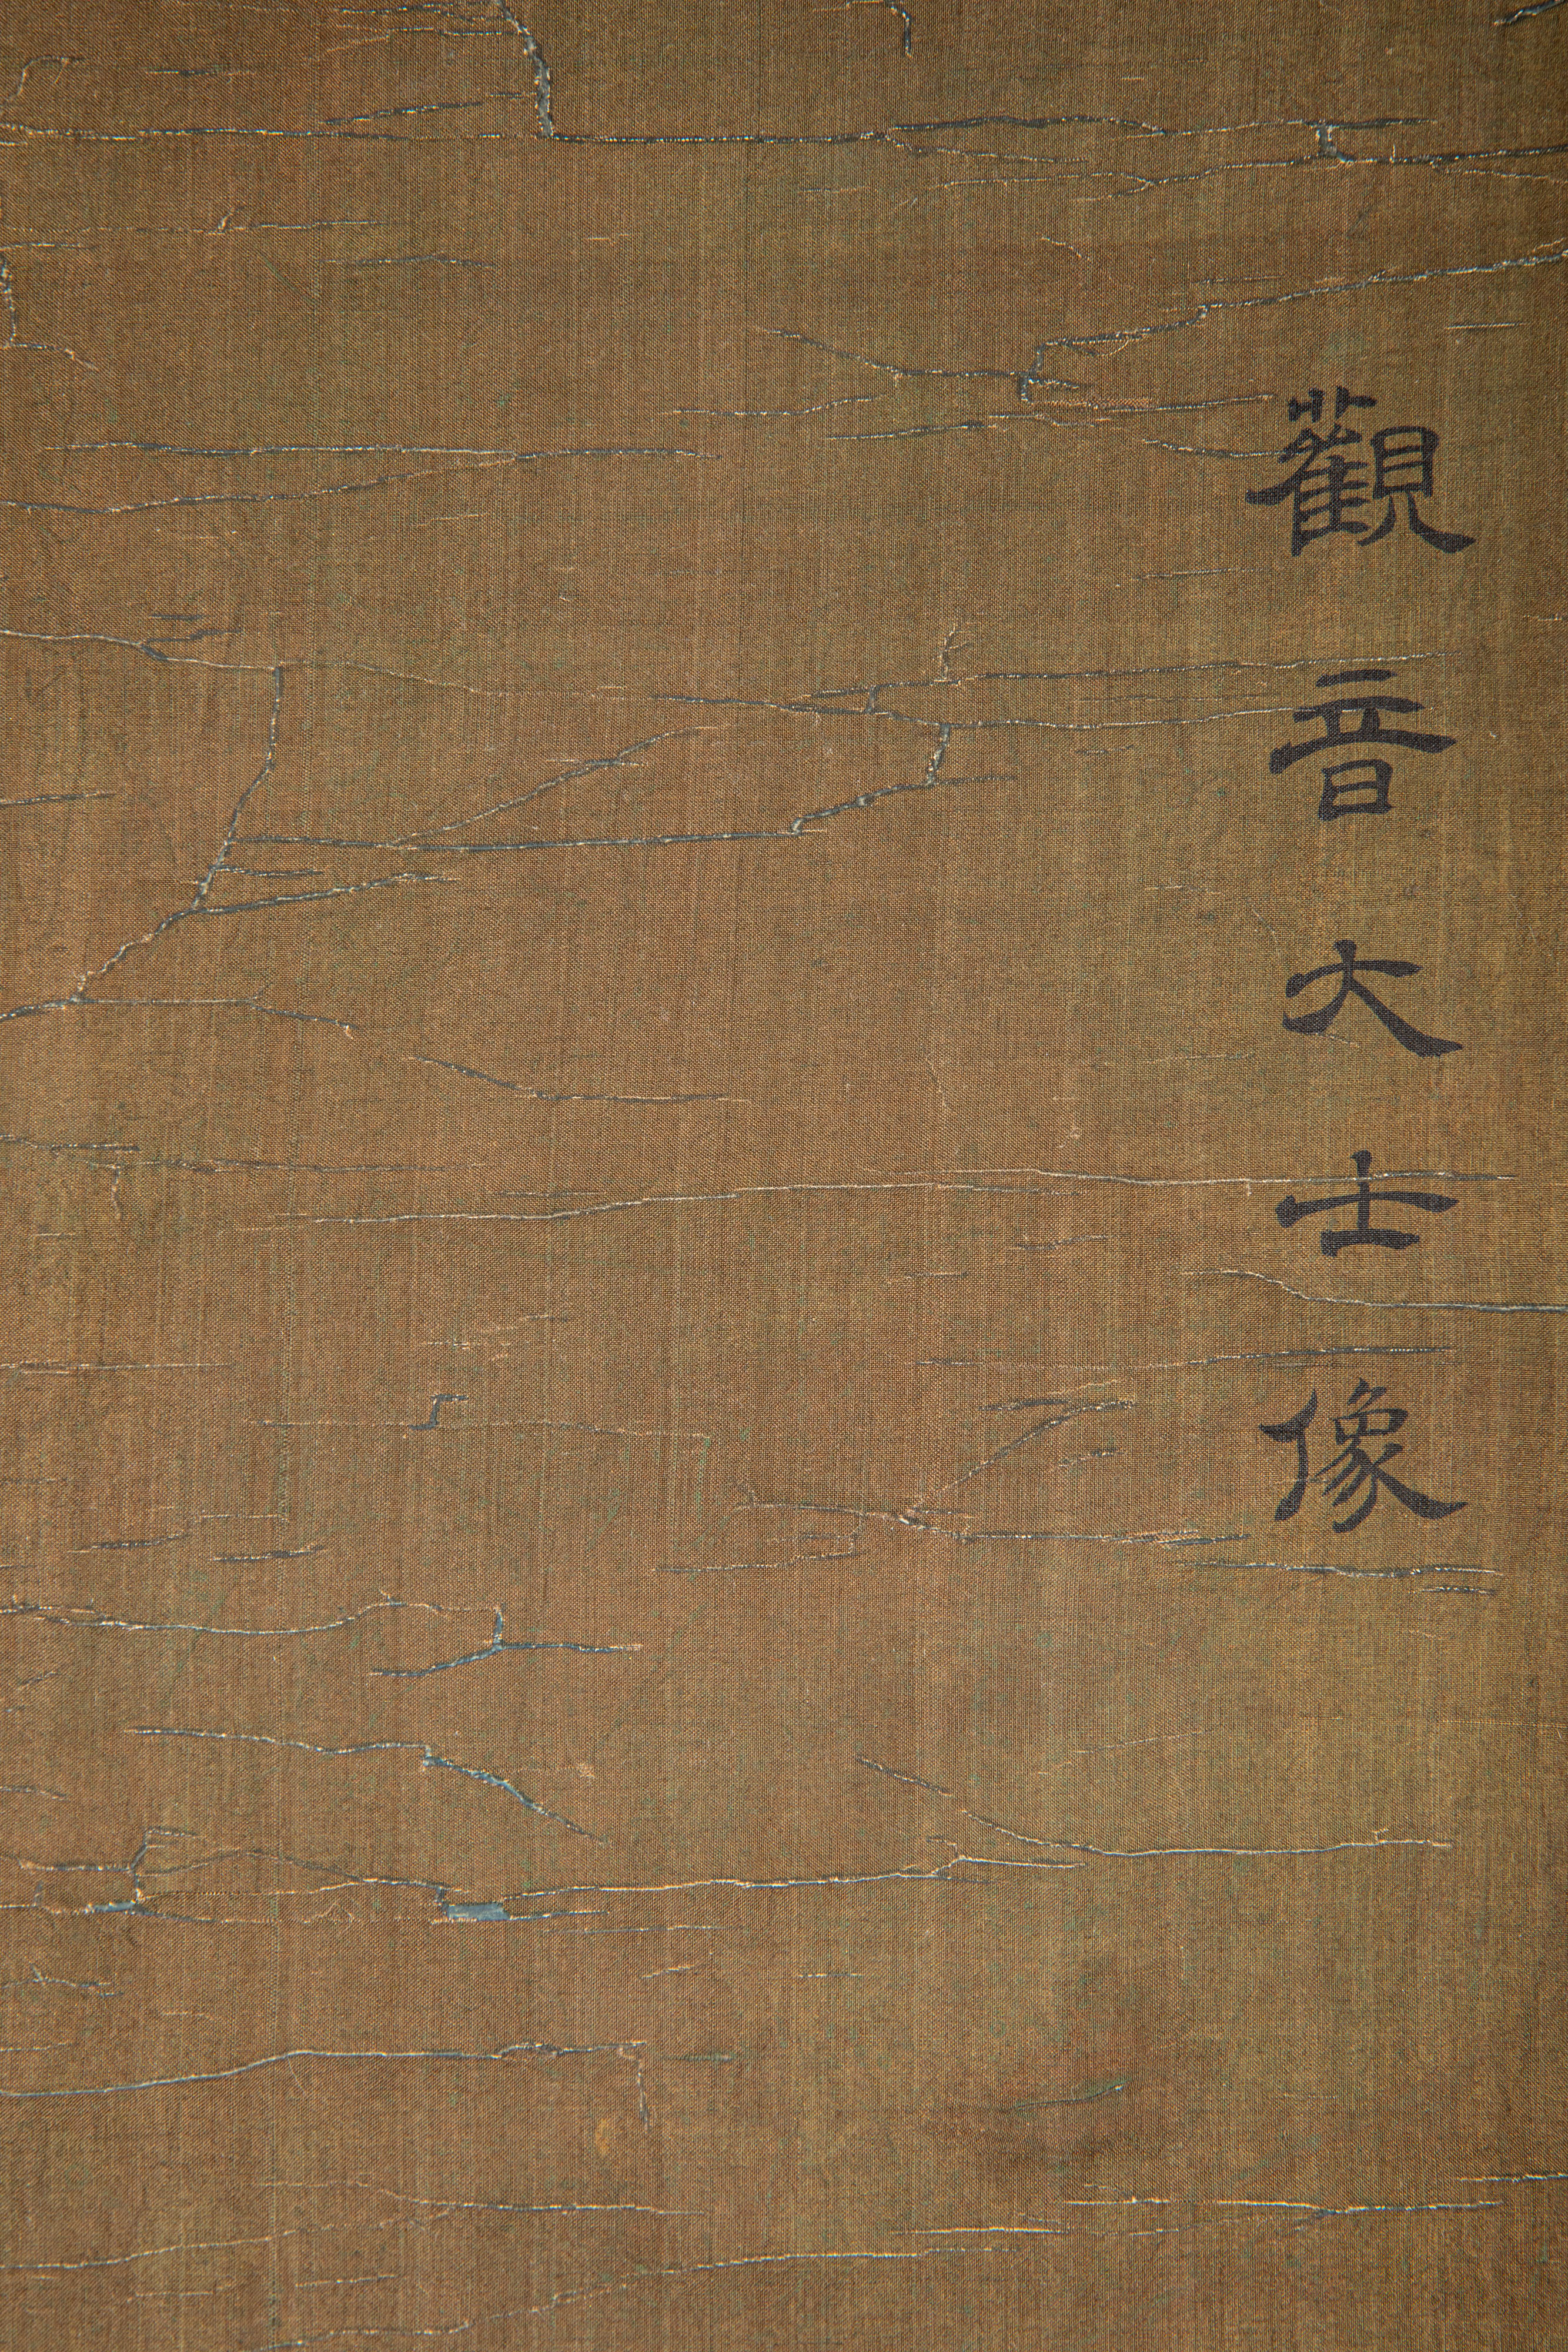 觀音大士像